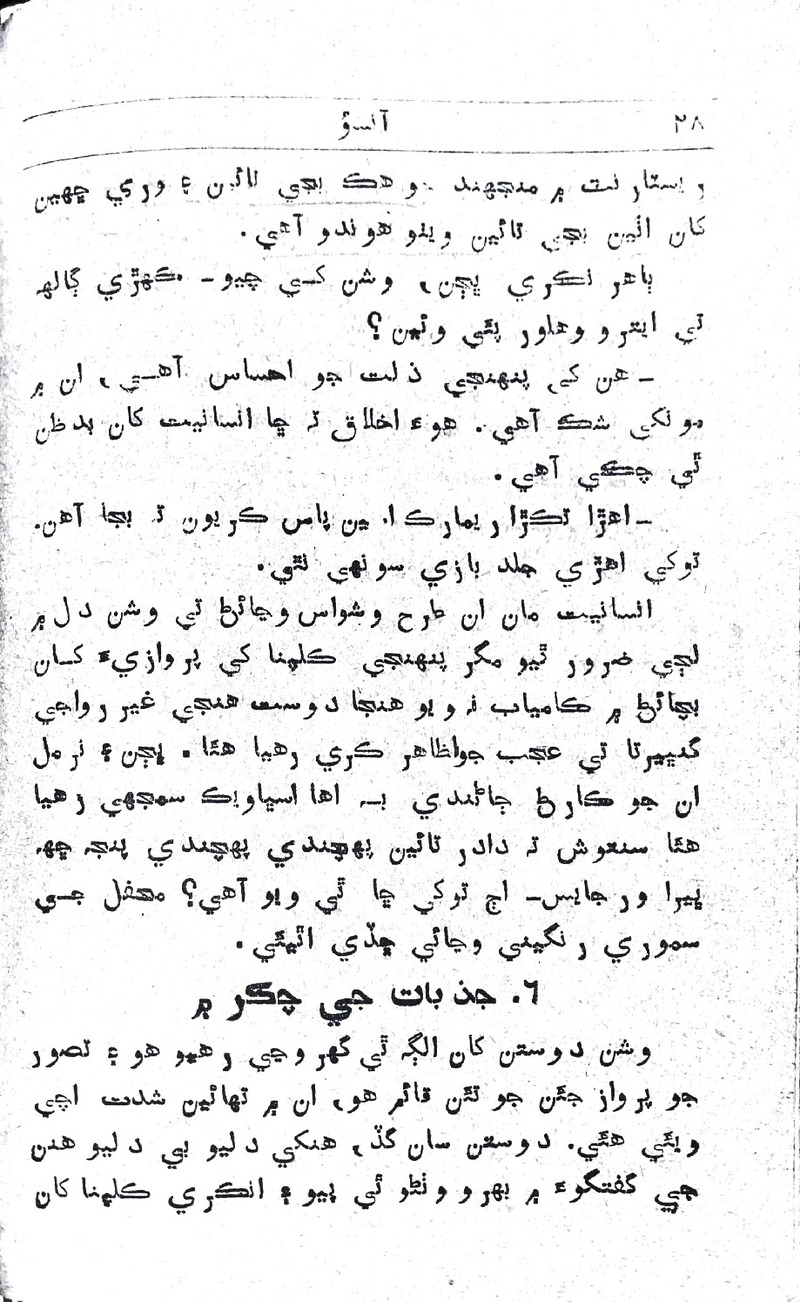 ۲۸ آنسوُ
ريستارنٽ ۾ منجهند جو هڪ بجي تائين ۽ وري ڇهين
کان اٺين بجي تائين ويٺو هوندو آهي.
ٻاهر نڪري ڀڃن، وشن کي چيو- ڪهڙي ڳالهه
تي ايترو وهلور پئي وئين؟
-هن کي پنهنجي ذلت جو احساس آهي، ان ۾
مونکي شڪ آهي. هوءَ اخلاق ته ڇا انسانيت کان بدظن
ٿي چڪي آهي.
-اهڙا تڪڙا ريمارڪ ا. ين پاس ڪريون ته بجا آهن.
توکي اهڙي جلد بازي سونهي نٿي.
انسانيت مان ان طرح وشواس وڃائڻ تي وشن دل ۾
لڄي ضرور ٿيو مگر پنهنجي ڪلپنا کي پروازيءَ کان
بچائڻ ۾ ڪامياب نه ويو هنجا دوست هنجي غير رواجي
گنڀيرتا تي عجب جو اظاهر ڪري رهيا هئا. ڀڃن ۽ نرمل
ان جو ڪارڻ ڄاڻندي به اها اسڀاوڪ سمجهي رهيا
هئا سنتوش ته دادر تائين پهچندي پهچندي پنجه ڇهه
ڀيرا ورجايس- اڄ توکي ڇا ٿي ويو آهي؟ محفل جي
سموري رنگيني وڃائي ڇڏي اٿيئي.
۶. جذبات جي چڪر ۾
وشن دوستن کان الڳ ٿي گهر وڃي رهيو هو ۽ تصور
جو پرواز جئن جو تئن قائم هو، ان ۾ تهائين شدت اچي
ويئي هئي. دوستن سان گڏ، هنکي دليو بي دليو هنن
جي گفتگوءَ ۾ بهرو وٺڻو ٿي پيو ۽ انڪري ڪلپنا کان